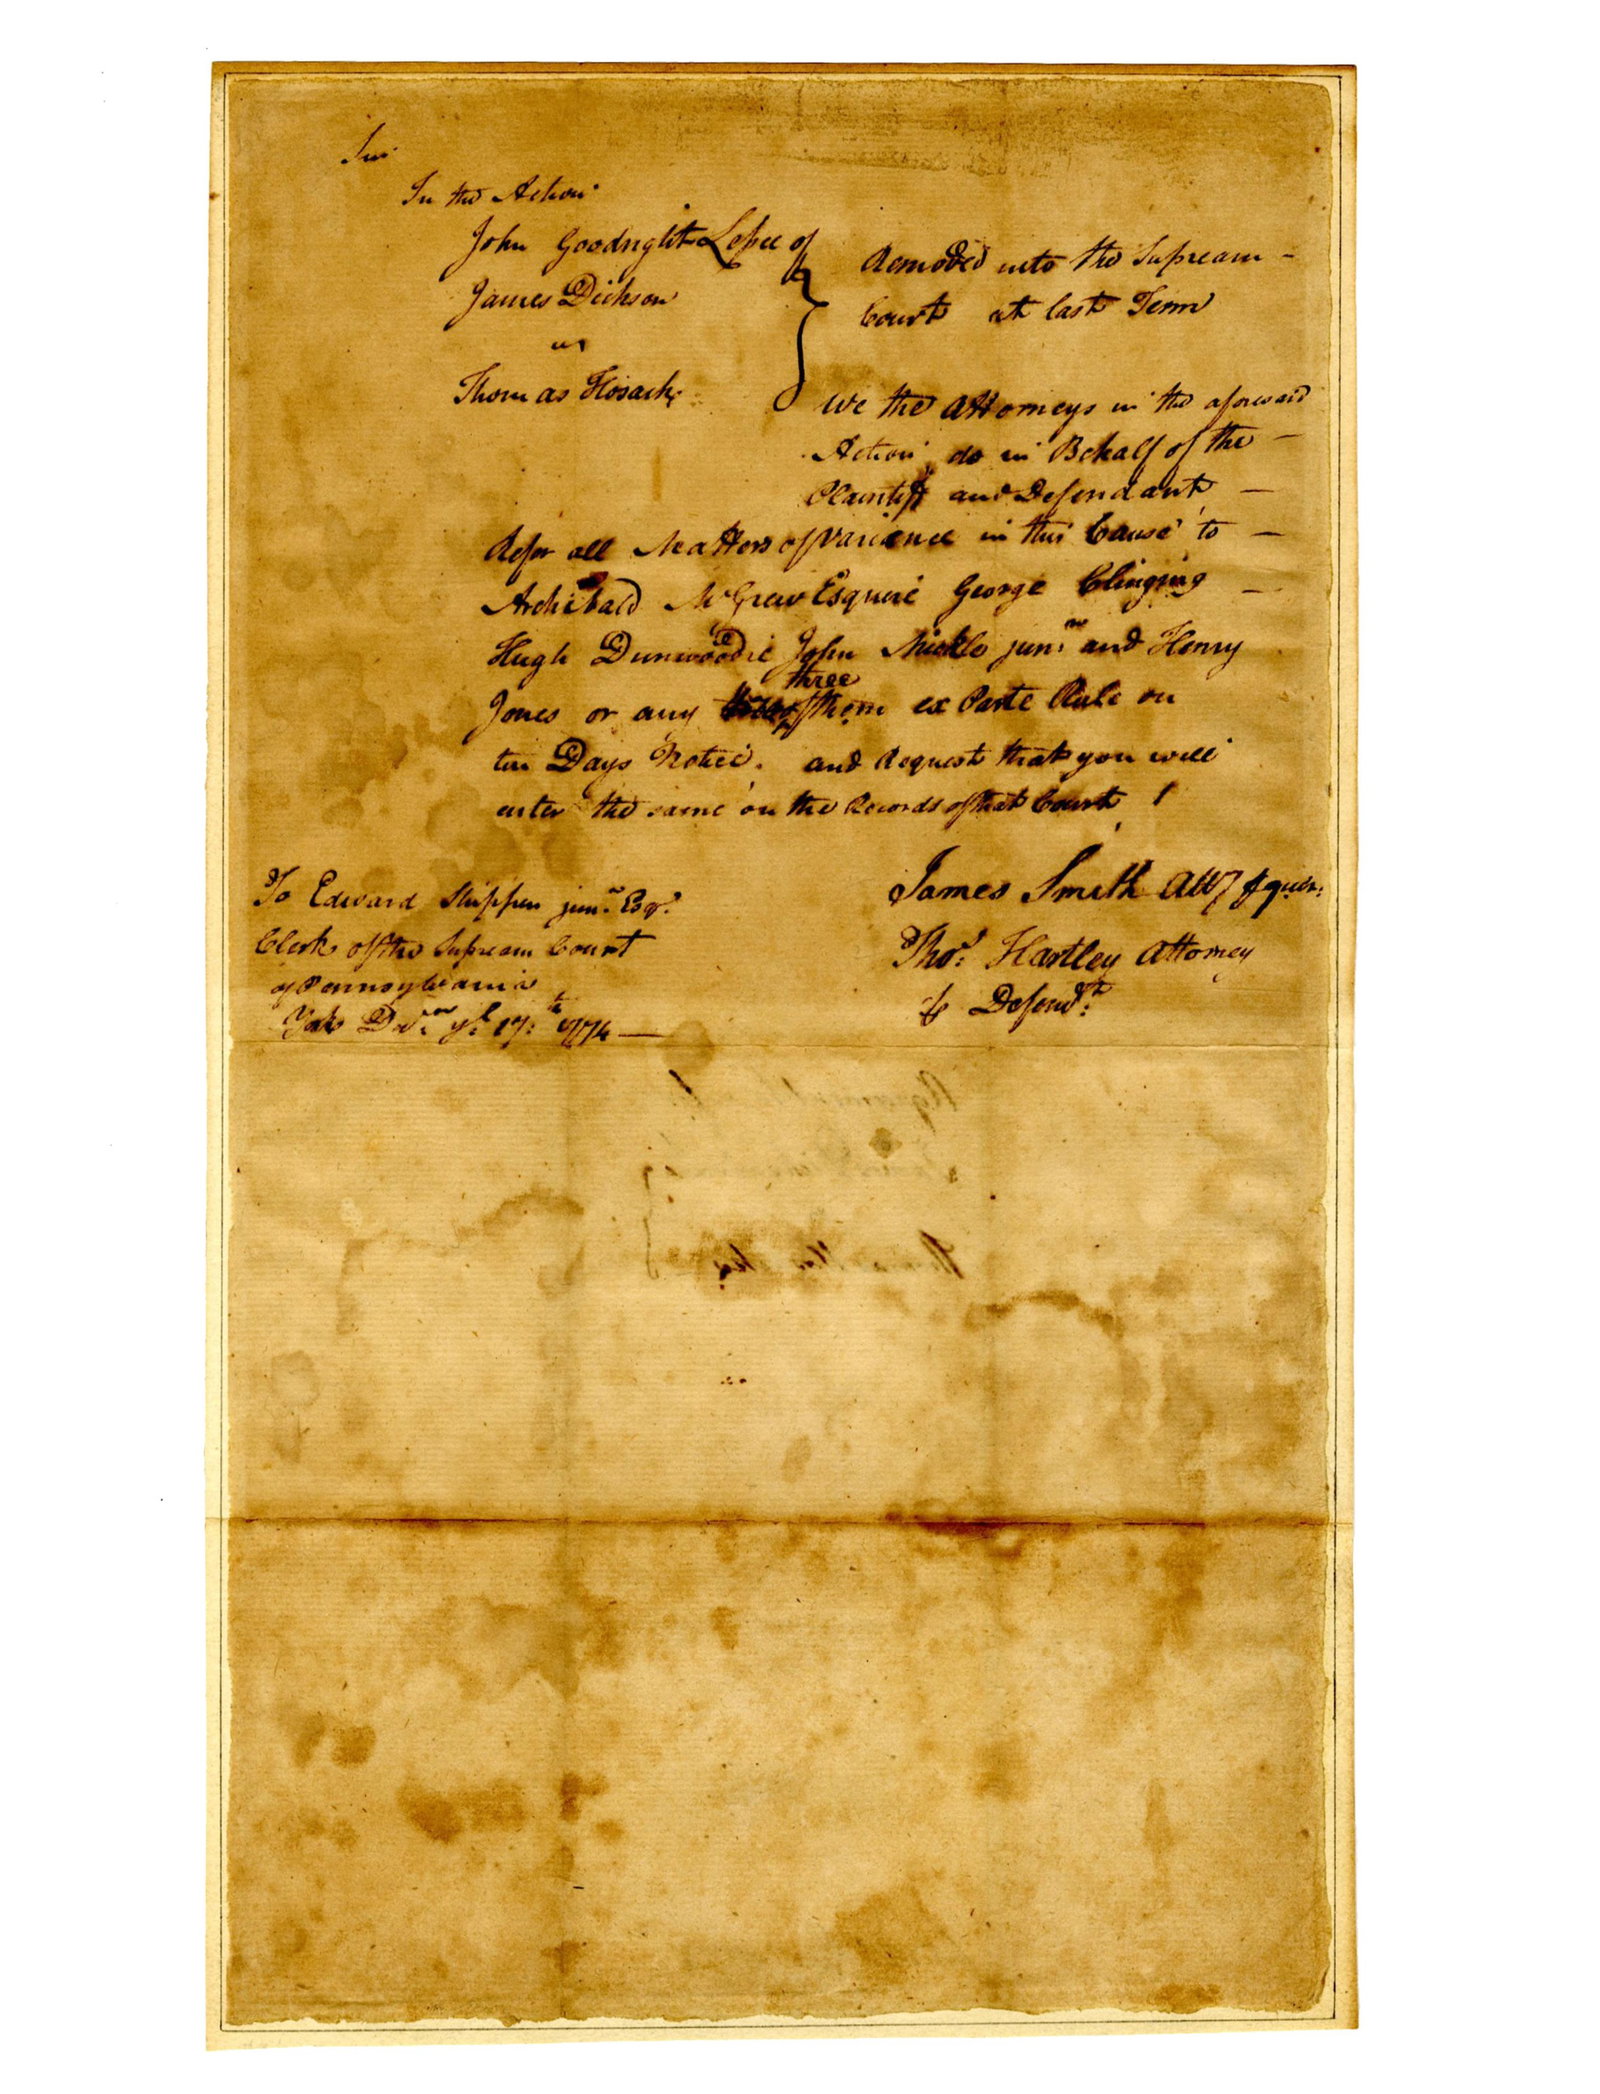 Sir
In the Action
John Goodright Lessee of
James Dickson
vs
Thomas Hosack
Removed into the Supream -
Court at last Term
We the Attorneys in the aforesaid
Action do in Behalf of the -
Plaintiff and Defendant -
Refer all Matters of Variance in this Cause to -
Archibald McGrew Esquire George Clinging -
Hugh Dunwoodie John Mickle junr and Henry
three
Jones or any of them ex Parte Rule on
ten Days Notice. and Request that you will
enter the same on the Records of that Court
James Smith Atty
Thos: Hartley Attorney
Defendt:
To Edward Shippen junr. Esqr.
Clerk of the Supream Court
of Pennsylvania
17:th 1774 —